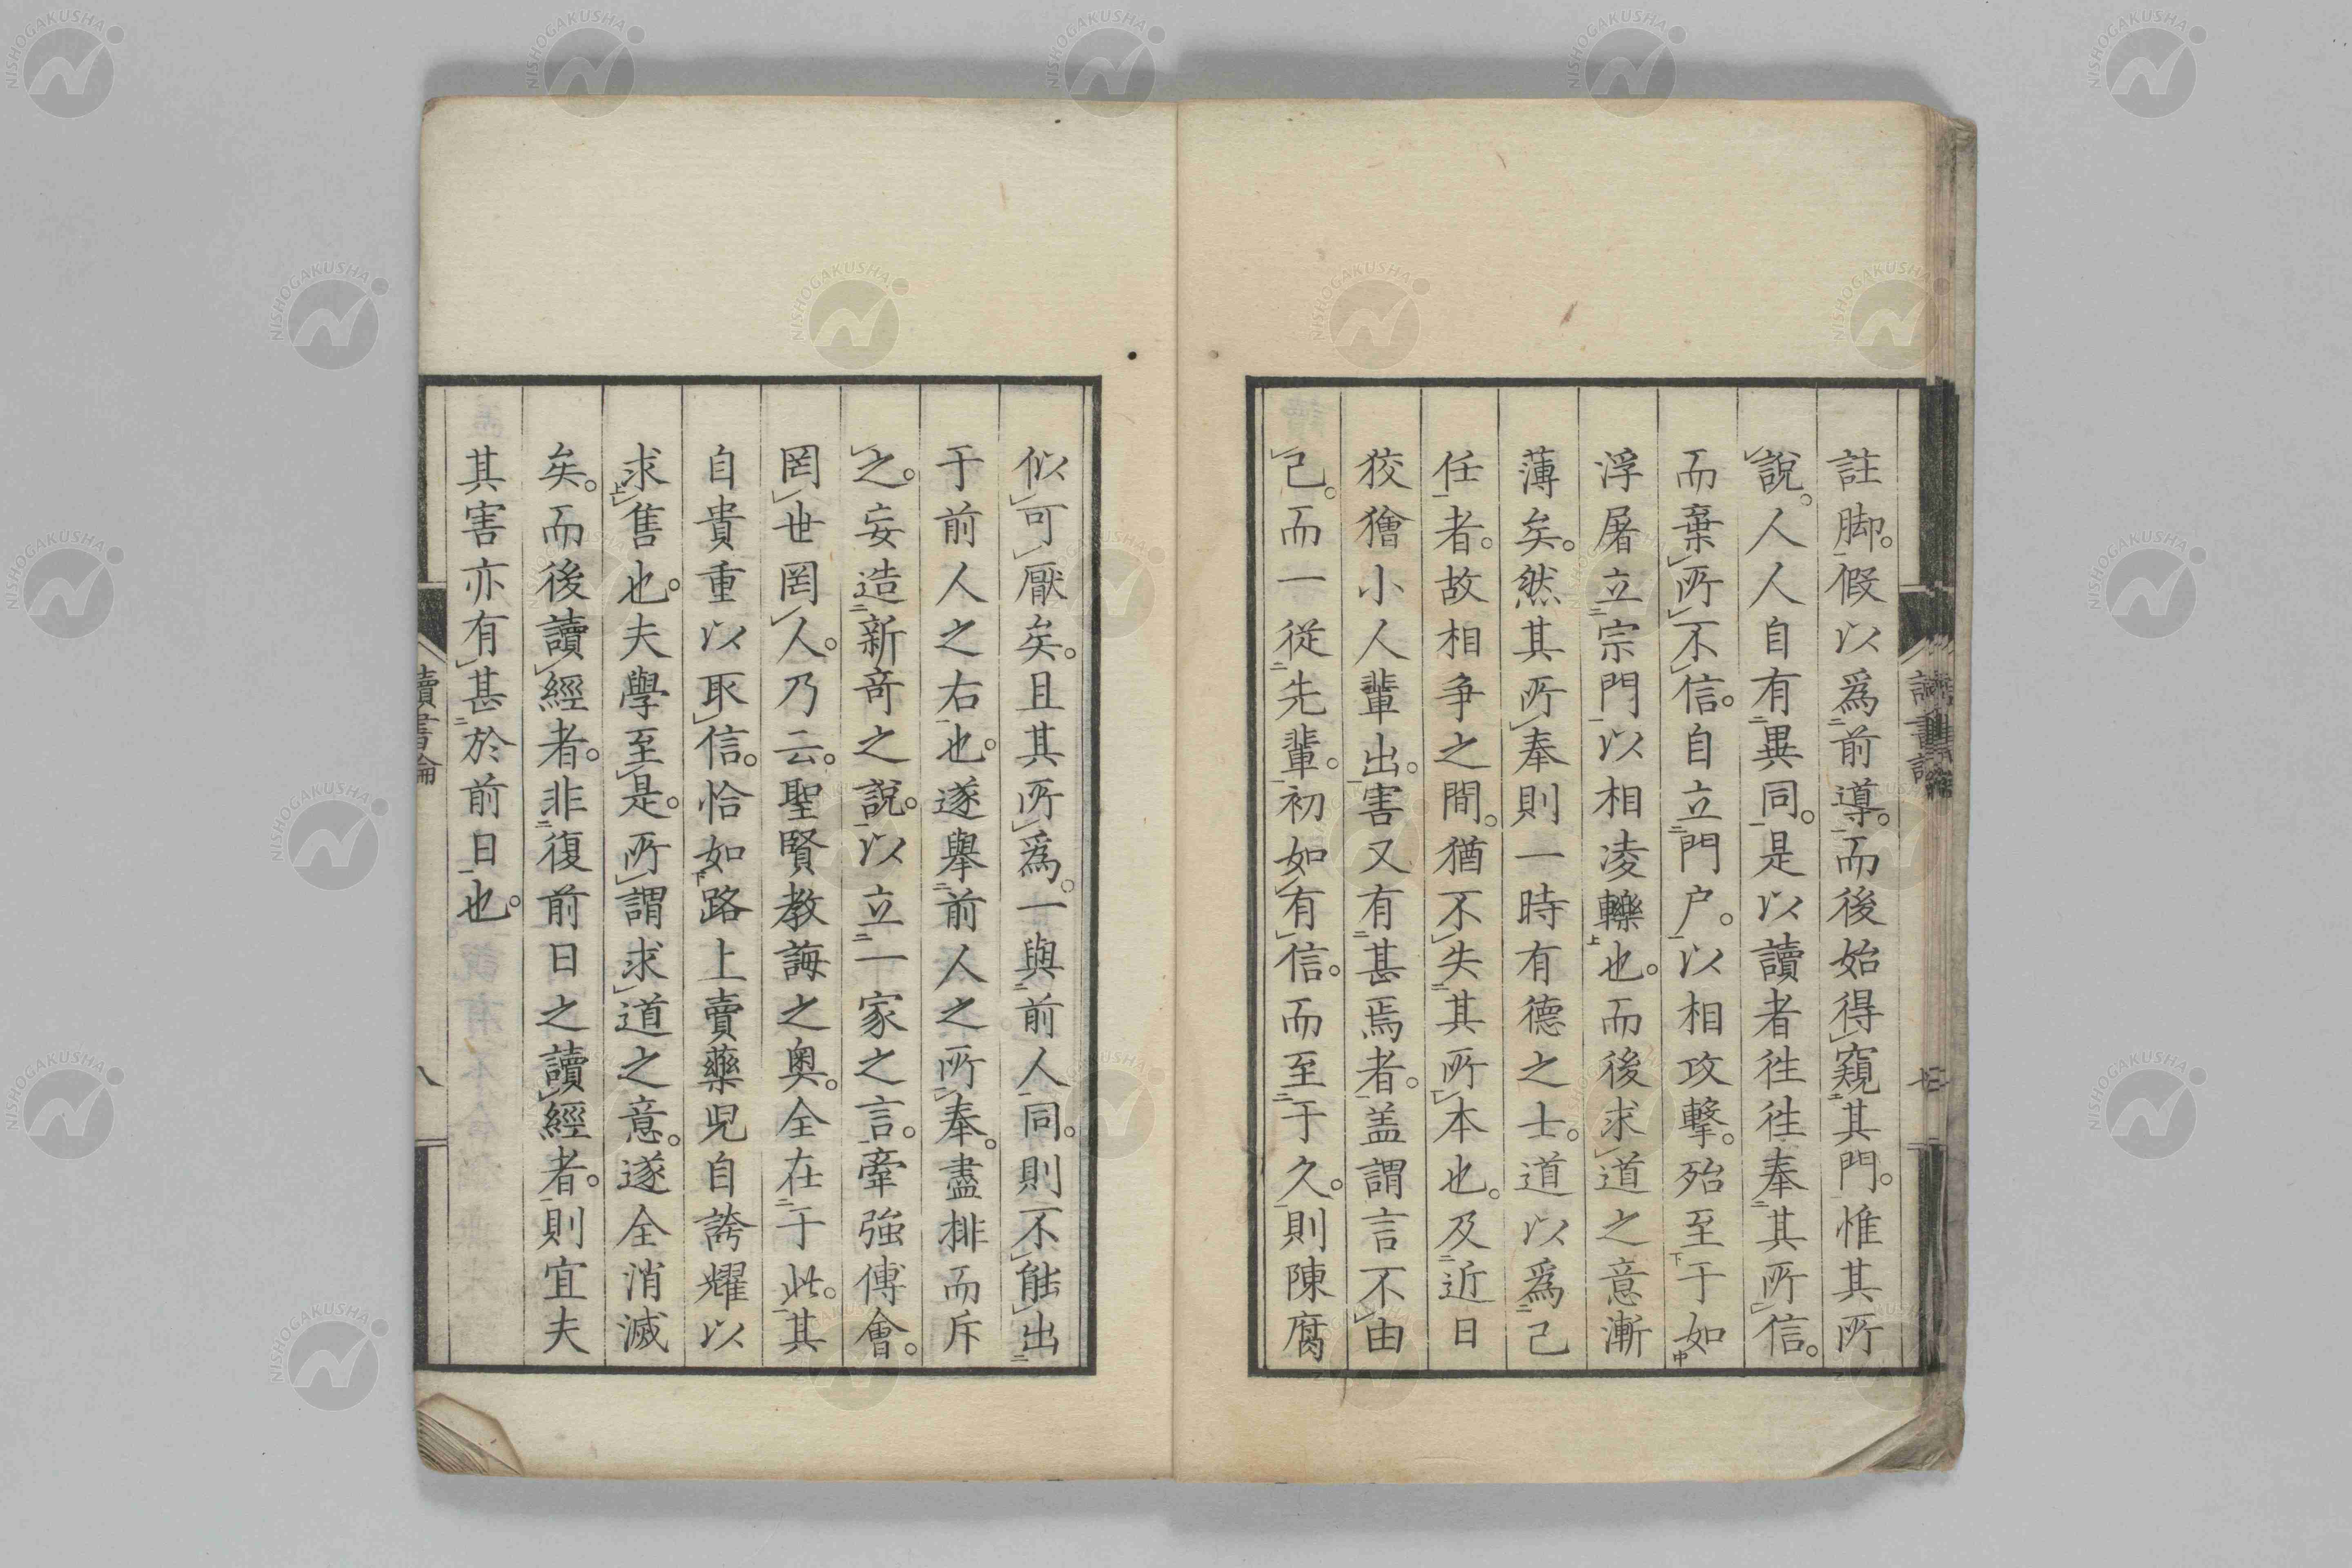 註脚。假以爲前導。而後始得窺其門。惟其所
說。人人自有異同。是以讀者往往奉其所信。
而棄所不信。自立門戶。以相攻擊。殆至于如
浮屠立宗門以相凌轢也。而後求道之意漸
薄矣。然其所奉則一時有德之士。道以爲己
任者。故相爭之間。猶不失其所本也。及近日
狡獪小人輩出。害又有甚焉者。盖謂言不由
己。而一從先輩。初如有信。而至于久。則陳腐
似可厭矣。且其所爲。一與前人同。則不能出
于前人之右也。遂舉前人之所奉。盡排而斥
之。妄造新奇之說。以立一家之言。牽強傅會。
罔世罔人。乃云。聖賢教誨之奧。全在于此。其
自貴重以取信。恰如路上賣藥兒自誇耀以
求售也。夫學至是。所謂求道之意。遂全消滅
矣。而後讀經者。非復前日之讀經者。則宜夫
其害亦有甚於前日也。
讀書論
八
NISHOGAKUSHA